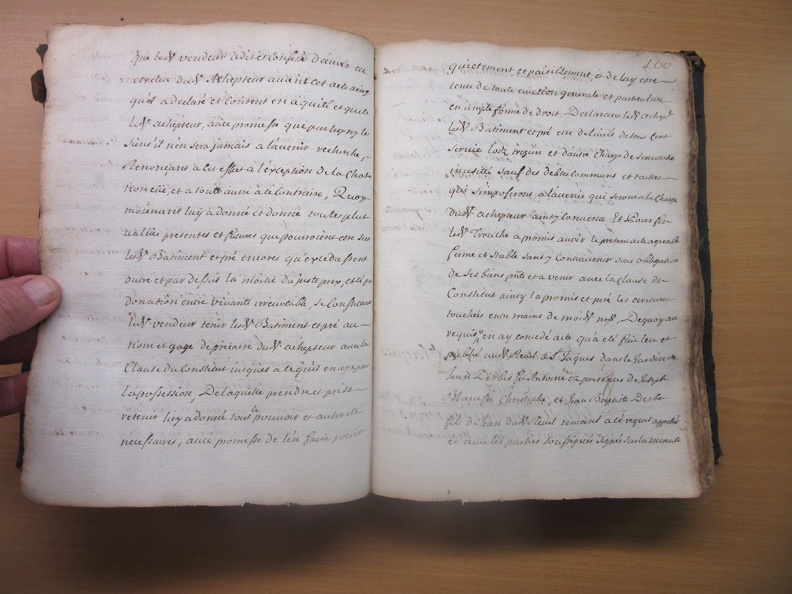 vendeur a dit et confessé d'avoir eu
et receu dud achepteur avant cet acte ainsy
qu'il a declaré et content en a quitté et quitte
led achepteur, avec promesse que par luy ny les
siens il n'en sera jamais a l'avenir recherché,
Renonçant a cet effet a l'exception de la chose
non eüe, et a toute autre a ce contraire, Quoy
moienant luy a donné et donne toutes plus
values presentes et futures que pourroient etre sur
lesd Batiment et pré encores qu'exedassent
outre et par dessus la moitié du juste prix, et le par
donation entre vivants irrevocable, se Constituant
led vendeur tenir lesd Batiment et pré au
nom et de précaire dud achepteur avec la
Clause du Constitut jusques a ce qu'il en aye pris
la possession, De laquelle prendre et prise
retenir luy a donné tout le pouvoir et autorité
necessaires, avec promesse de l'en faire jouir
quietement et paisiblement, et de luy etre
tenu de toute eviction generale et particuliere
en ample forme de droit, Declarant led achept
lesd Batiment et pré etre de livrés de tous cens
service lodz trezun et d'autre charge de servitude
sauf des debtes communs et tailles
qui s'imposeront a l'avenir qui seront a la charge
dud achepteur ainsy convenu, Et Pour fin
led Trouche a promis avoir le present acte agreable
ferme et stable sans y Contrevenir sous obligation
de ses biens pnts et a venir avec la Clause du
Constitut ainsy l'a promis et juré les
touchées entre mains de moid no, De quoy au
requis en ay concedé acte qui a eté fait leu et
publié aud de St Jaques dans le jardin de
Jean fu Antoine ez presences de Joseph
fu Christophe, et Jean Baptiste
fils de Jean dud temoins a ce requis appellés
et avec les parties soussignées signés sur la minute